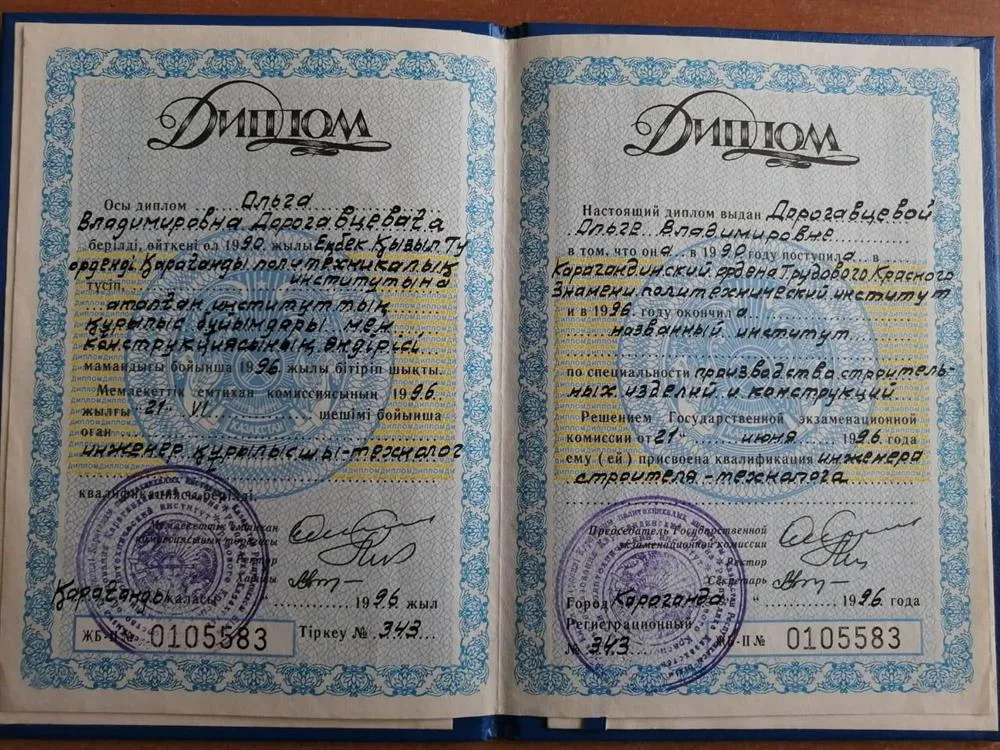 Диплом
Осы диплом Ольга
Владимировна Дорогавцеваға
берілді, өйткені ол 1990 жылы Еңбек Қызыл Ту
орденді Қарағанды политехникалық
түсіп, институтына
аталған институттың
құрылыс бұйымдары мен
конструкциясының өндірісі
мамандығы бойынша 1996 жылы бітіріп шықты.
Мемлекеттік емтихан комиссиясының 1996
жылғы "21" VI шешімі бойынша
оған
инженер құрылысшы-технолог
квалификациясы берілді.
Мемлекеттік емтихан
комиссиясының төрағасы
Ректор
Хатшы
Қарағанды қаласы " 1996 жыл
ЖБ-II № 0105583 Тіркеу № 343
Диплом
Настоящий диплом выдан Дорогавцевой
Ольге Владимировне
в том, что она в 1990 году поступила в
Карагандинский ордена Трудового Красного
Знамени политехнический институт
и в 1996 году окончила
названный институт
по специальности производства строитель-
ных изделий и конструкций
Решением Государственной экзаменационной
комиссии от "21" июня 1996 года
ему (ей) присвоена квалификация инженера
строителя-технолога
Председатель Государственной
экзаменационной комиссии
Ректор
Секретарь
Город Караганда " 1996 года
Регистрационный
№ 343 ЖБ-II № 0105583